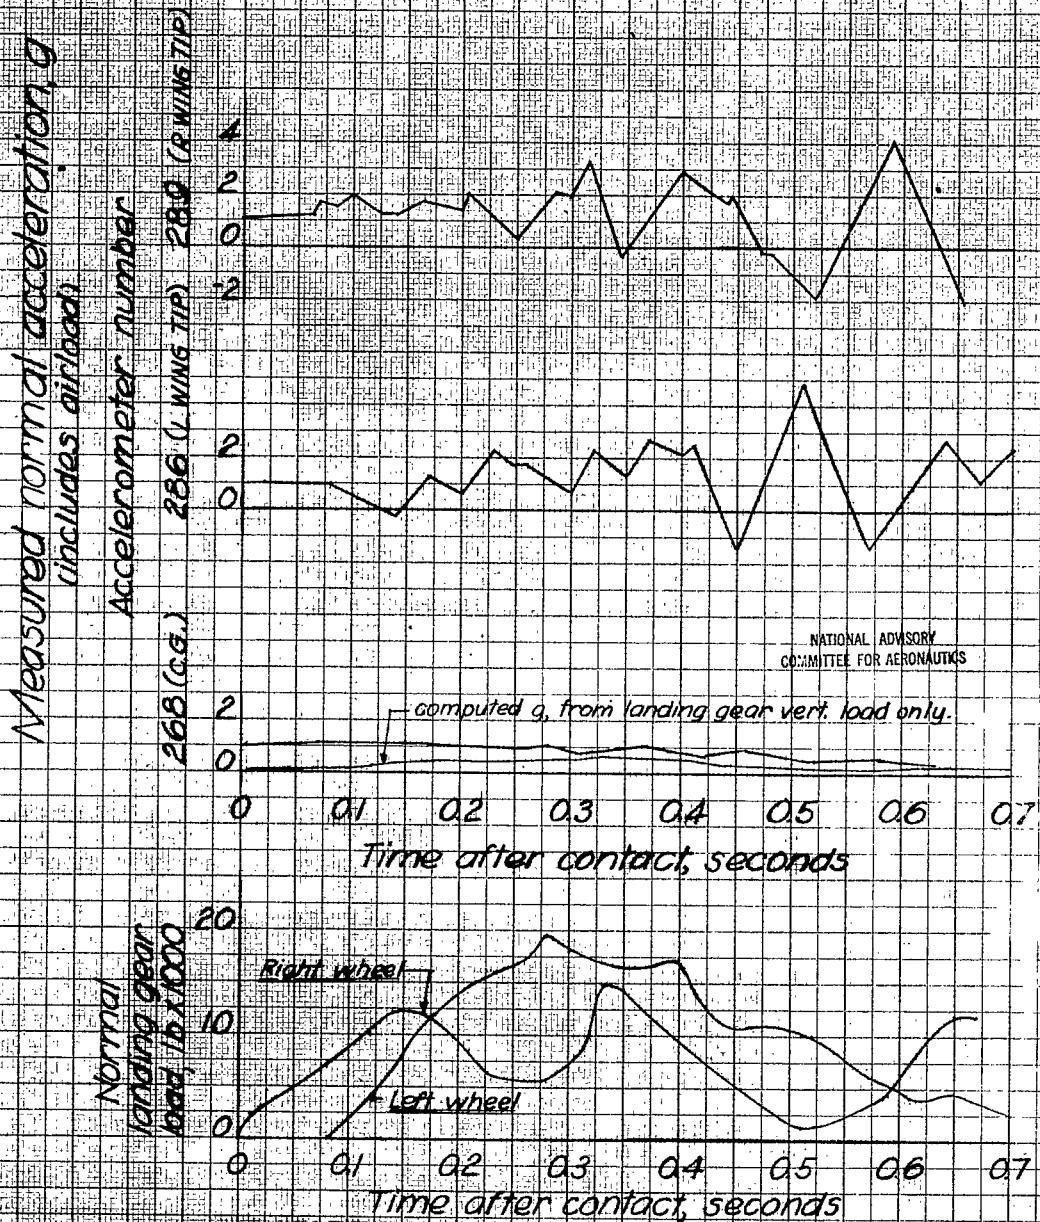 Measured normal acceleration, g
(includes airload)
Accelerometer number
289 (R WING TIP)
4
2
0
-2
286 (L WING TIP)
2
0
NATIONAL ADVISORY
COMMITTEE FOR AERONAUTICS
268 (C.G.)
2
0
computed g, from landing gear vert. load only.
0 0.1 0.2 0.3 0.4 0.5 0.6 0.7
Time after contact, seconds
Normal
landing gear
load, lb x 1000
20
10
0
Right wheel
Left wheel
0 0.1 0.2 0.3 0.4 0.5 0.6 0.7
Time after contact, seconds